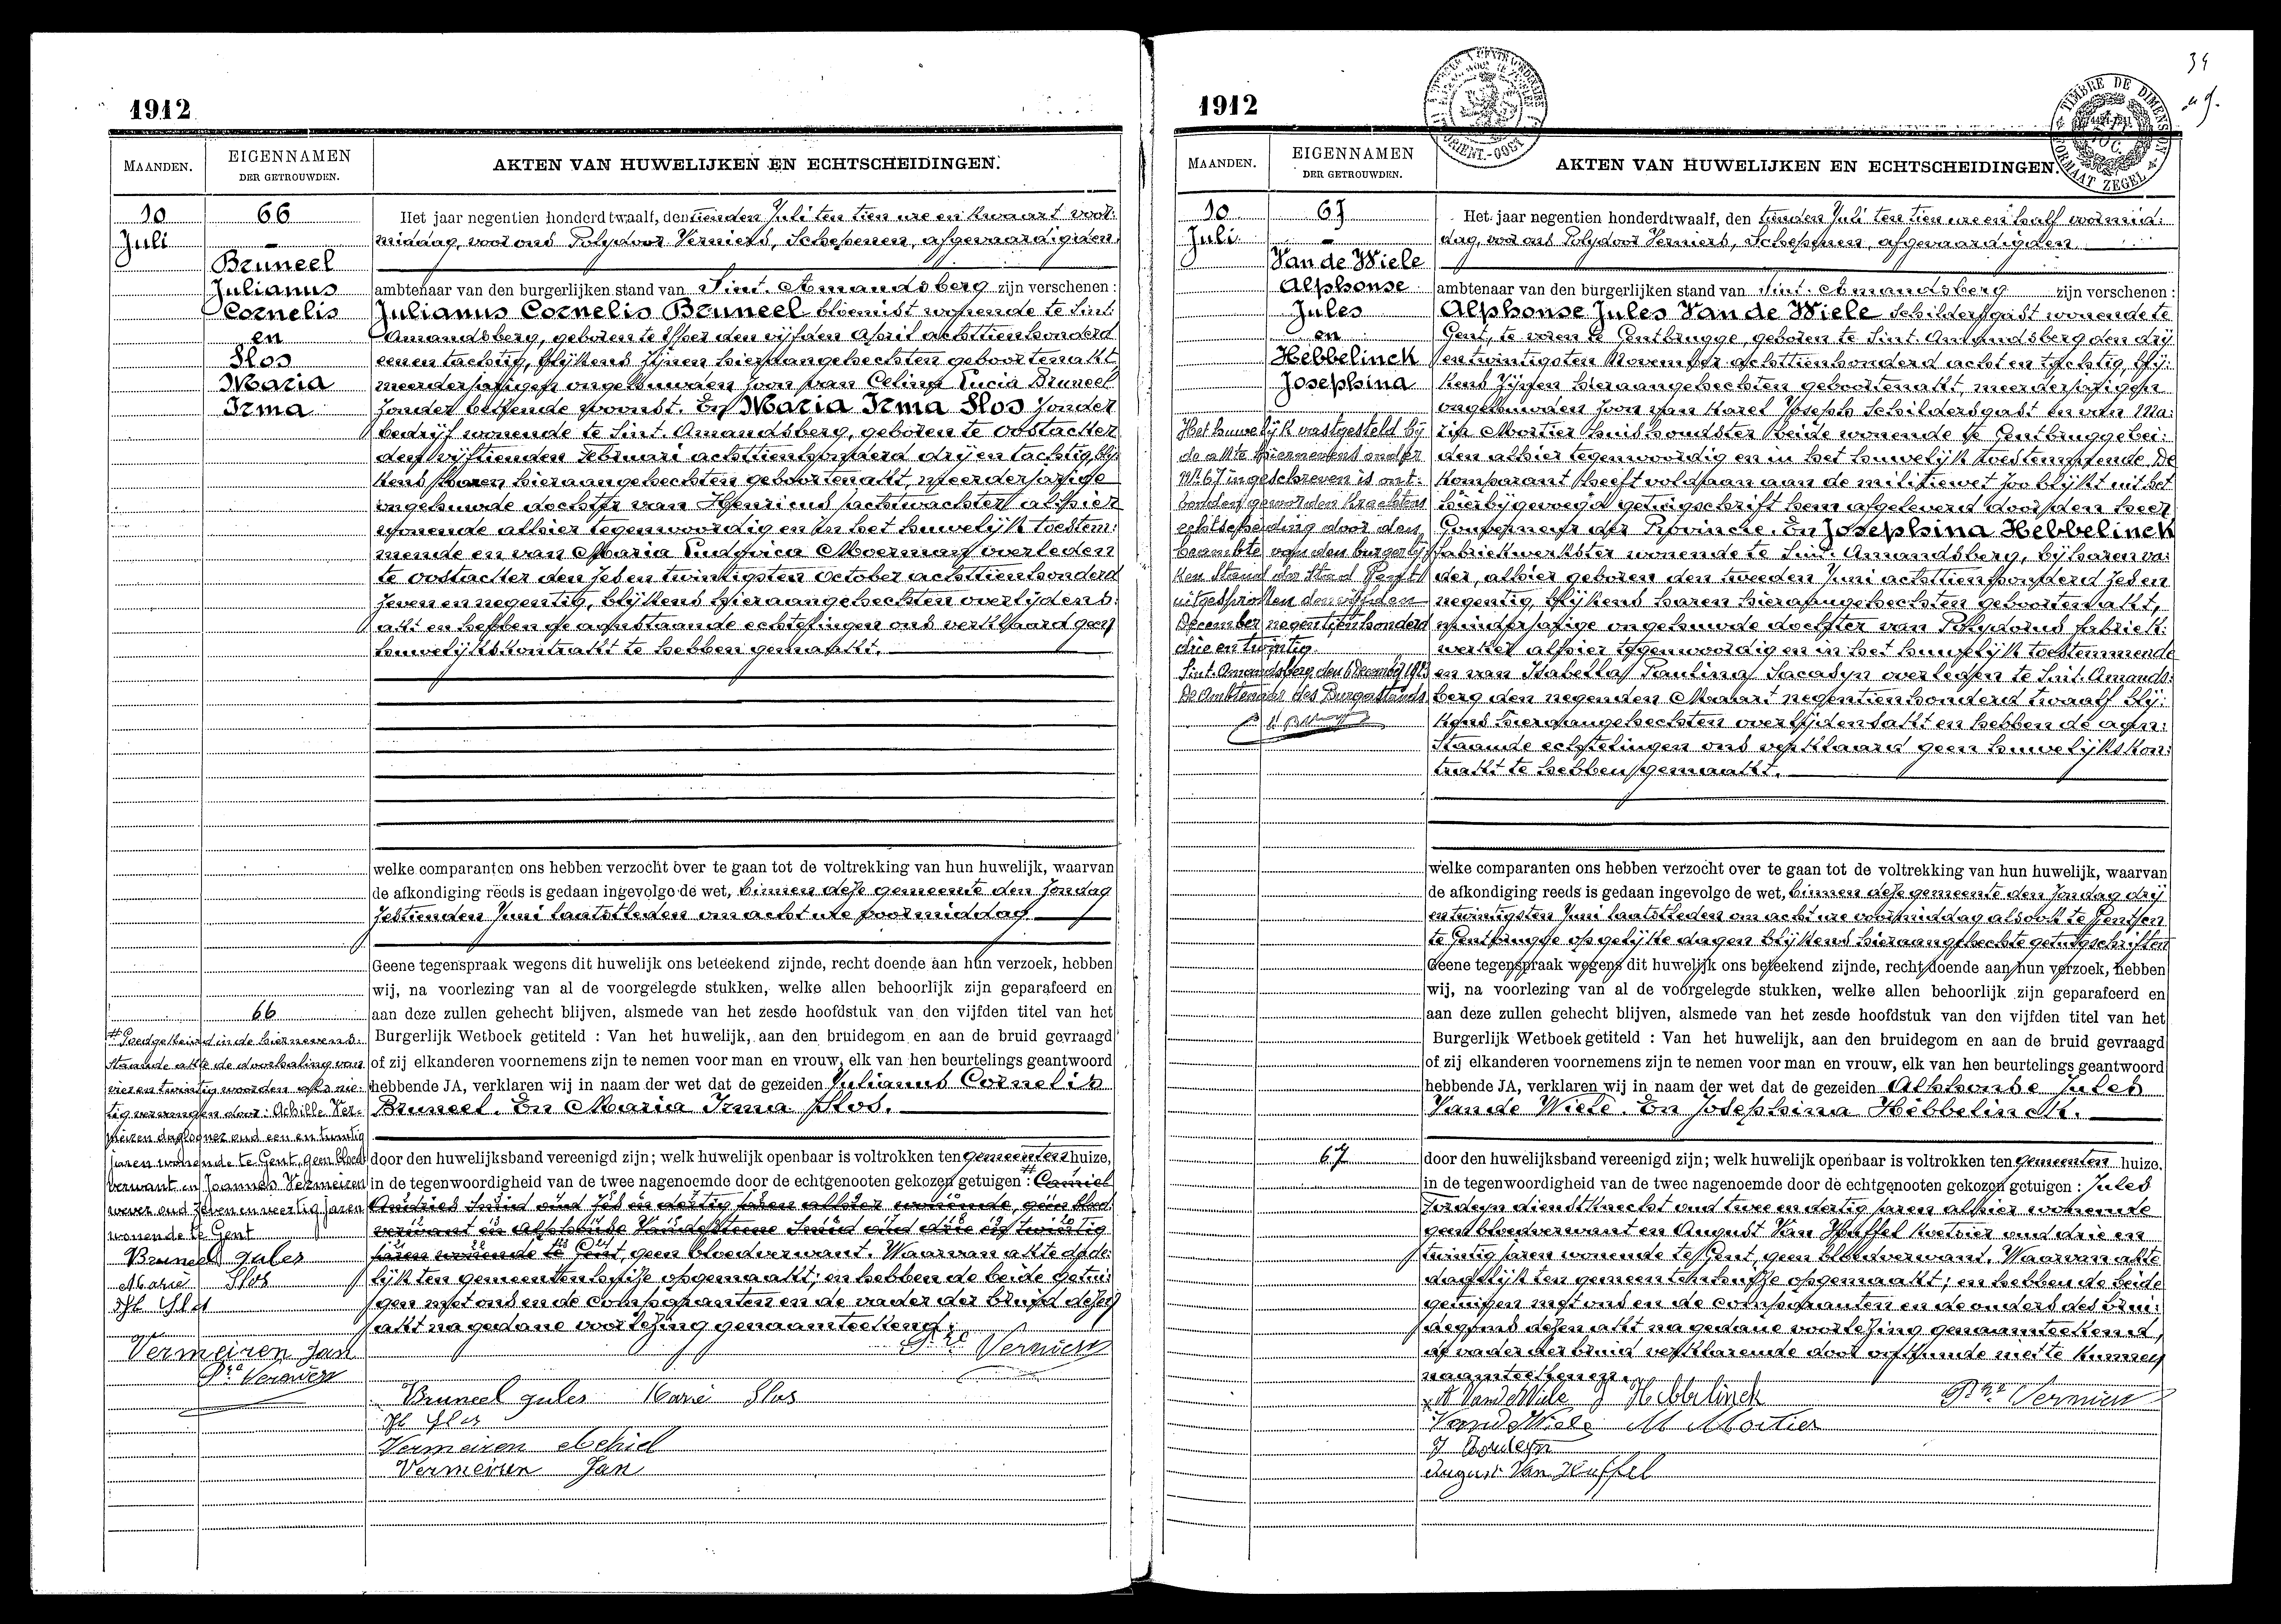 1912
MAANDEN.
EIGENNAMEN
DER GETROUWDEN.
AKTEN VAN HUWELIJKEN EN ECHTSCHEIDINGEN.
10
Juli
66
Bruneel
Julianus
Cornelis
en
Slos
Maria
Irma
Het jaar negentien honderd twaalf, den tienden Juli ten tien ure en kwaart voor:
middag, voor ons Polydoor Verniers, Schepenen, afgevaardigden
ambtenaar van den burgerlijken stand van Sint. Amandsberg zijn verschenen :
Julianus Cornelis Bruneel bloemist wonende te Sint.
Amandsberg, geboren te den vijfden April achttienhonderd
eenen tachtig, blijkens zijnen hieraangehechten geboortenakt
meerderjarigen ongehuwden zoon van Celina Lucia Bruneel
zonder bekende woonst. En Maria Irma Slos zonder
bedrijf wonende te Sint. Amandsberg, geboren te Oostacker
den vijftienden Februari achttienhonderd drij en tachtig, blij
kens haren hieraangehechten geboortenakt, meerderjarige
ongehuwde dochter van Henricus nachtwachter alhier
wonende alhier tegenwoordig en in het huwelijk toestem:
mende en van Maria Ludovica Moerman overleden
te Oostacker den zes en twintigsten October achttienhonderd
zeven en negentig, blijkens hieraangehechten overlijdens:
akt en hebben de aanstaande echtelingen ons verklaard geen
huwelijkskontrakt te hebben gemaakt.
welke comparanten ons hebben verzocht over te gaan tot de voltrekking van hun huwelijk, waarvan
de afkondiging reeds is gedaan ingevolge de wet, binnen deze gemeente den Zondag
zestienden Juni laatstleden om acht ure voormiddag
Geene tegenspraak wegens dit huwelijk ons beteekend zijnde, recht doende aan hun verzoek, hebben
wij, na voorlezing van al de voorgelegde stukken, welke allen behoorlijk zijn geparafeerd en
aan deze zullen gehecht blijven, alsmede van het zesde hoofdstuk van den vijfden titel van het
Burgerlijk Wetboek getiteld : Van het huwelijk, aan den bruidegom en aan de bruid gevraagd
of zij elkanderen voornemens zijn te nemen voor man en vrouw, elk van hen beurtelings geantwoord
hebbende JA, verklaren wij in naam der wet dat de gezeiden Julianus Cornelis
Bruneel. En Maria Irma Slos.
door den huwelijksband vereenigd zijn; welk huwelijk openbaar is voltrokken ten gemeenten huize,
in de tegenwoordigheid van de twee nagenoemde door de echtgenooten gekozen getuigen : Camiel
Andries Smid oud zes en dertig jaren alhier wonende, geen bloed
verwant en Alphonse Smid oud drie en twintig
jaren wonende te Gent, geen bloedverwant. Waarvan akte dade:
lijk ten gemeentenhuize opgemaakt; en hebben de beide getui:
gen met ons en de comparanten en de vader der bruid dezen
akt na gedane voorlezing genaamteekend.
66
# Goedgekeurd in de hiernevens:
staande akte de doorhaling van
vier en twintig woorden als nie:
tig vervangen door: Achille Ver:
meiren daglooner oud een en twintig
jaren wonende te Gent, geen bloed
verwant en Joannes Vermeiren
wever oud zeven en veertig jaren
wonende te Gent
Bruneel gules
Marie Slos
Vermeiren Jan
Verniers
Bruneel gules Marie Slos
Vermeiren Achiel
Vermeiren Jan
1912
34
MAANDEN.
EIGENNAMEN
DER GETROUWDEN.
AKTEN VAN HUWELIJKEN EN ECHTSCHEIDINGEN.
TIMBRE DE DIMENSION
FORMAAT ZEGEL
10
Juli
67
Van de Wiele
Alphonse
Jules
en
Hebbelinck
Josephina
Het jaar negentien honderd twaalf, den tienden Juli ten tien ure en half voormid:
dag, voor ons Polydoor Verniers, Schepenen, afgevaardigden
ambtenaar van den burgerlijken stand van Sint. Amandsberg zijn verschenen :
Alphonse Jules Van de Wiele Schildersgast wonende te
Gent, te voren te Gentbrugge, geboren te Sint. Amandsberg den drij
en twintigsten November achttienhonderd acht en tachtig, blij:
kens zijnen hieraangehechten geboortenakt, meerderjarigen
ongehuwden zoon van Karel Joseph Schildersgast en van Ma:
ria Mortier huishoudster beide wonende te Gentbrugge bei:
den alhier tegenwoordig en in het huwelijk toestemmende. De
komparant heeft voldaan aan de militiewet zoo blijkt uit het
hierbijgevoegd getuigschrift hem afgeleverd door den heer
Gouverneur der Provincie. En Josephina Hebbelinck
fabriekwerkster wonende te Sint. Amandsberg, bij haren va:
der, alhier geboren den tweeden Juni achttienhonderd zes en
negentig, blijkens haren hieraangehechten geboortenakt,
minderjarige ongehuwde dochter van Polydorus fabriek:
werker alhier tegenwoordig en in het huwelijk toestemmende
en van Isabella Paulina Sacasyn overleden te Sint. Amands:
berg den negenden Maart negentienhonderd twaalf blij:
kens hieraangehechten overlijdensakt en hebben de aan:
staande echtelingen ons verklaard geen huwelijkskon:
trakt te hebben gemaakt.
Het huwelijk vastgesteld bij
de akte hiernevens onder
Nr. 67 ingeschreven is ont:
bonden geworden krachtens
echtscheiding door den
beambte van den burgerlij
ken Stand der Stad Gent
uitgesproken den vijfden
December negentienhonderd
drie en twintig.
Sint. Amandsberg, den 6 December 1923
De Ambtenaar des Burgerstands
welke comparanten ons hebben verzocht over te gaan tot de voltrekking van hun huwelijk, waarvan
de afkondiging reeds is gedaan ingevolge de wet, binnen deze gemeente den Zondag drij
en twintigsten Juni laatstleden om acht ure voormiddag alsook te Gent en
te Gentbrugge op gelijke dagen blijkens hieraangehechte getuigschriften
Geene tegenspraak wegens dit huwelijk ons beteekend zijnde, recht doende aan hun verzoek, hebben
wij, na voorlezing van al de voorgelegde stukken, welke allen behoorlijk zijn geparafeerd en
aan deze zullen gehecht blijven, alsmede van het zesde hoofdstuk van den vijfden titel van het
Burgerlijk Wetboek getiteld : Van het huwelijk, aan den bruidegom en aan de bruid gevraagd
of zij elkanderen voornemens zijn te nemen voor man en vrouw, elk van hen beurtelings geantwoord
hebbende JA, verklaren wij in naam der wet dat de gezeiden Alphonse Jules
Van de Wiele. En Josephina Hebbelinck.
67
door den huwelijksband vereenigd zijn; welk huwelijk openbaar is voltrokken ten gemeenten huize.
in de tegenwoordigheid van de twee nagenoemde door de echtgenooten gekozen getuigen : Jules
Tordeyn dienstknecht oud twee en dertig jaren alhier wonende
geen bloedverwant en August Van Huffel hovenier oud drie en
twintig jaren wonende te Gent, geen bloedverwant. Waarvan akte
dadelijk ten gemeentenhuize opgemaakt; en hebben de beide
getuigen met ons en de comparanten en de ouders des brui:
degoms dezen akt na gedane voorlezing genaamteekend,
de vader der bruid verklarende door onkunde niet te kunnen
naamteekenen.
A VandeWiele J Hebbelinck Verniers
VandeWiele M Mortier
August Van Huffel